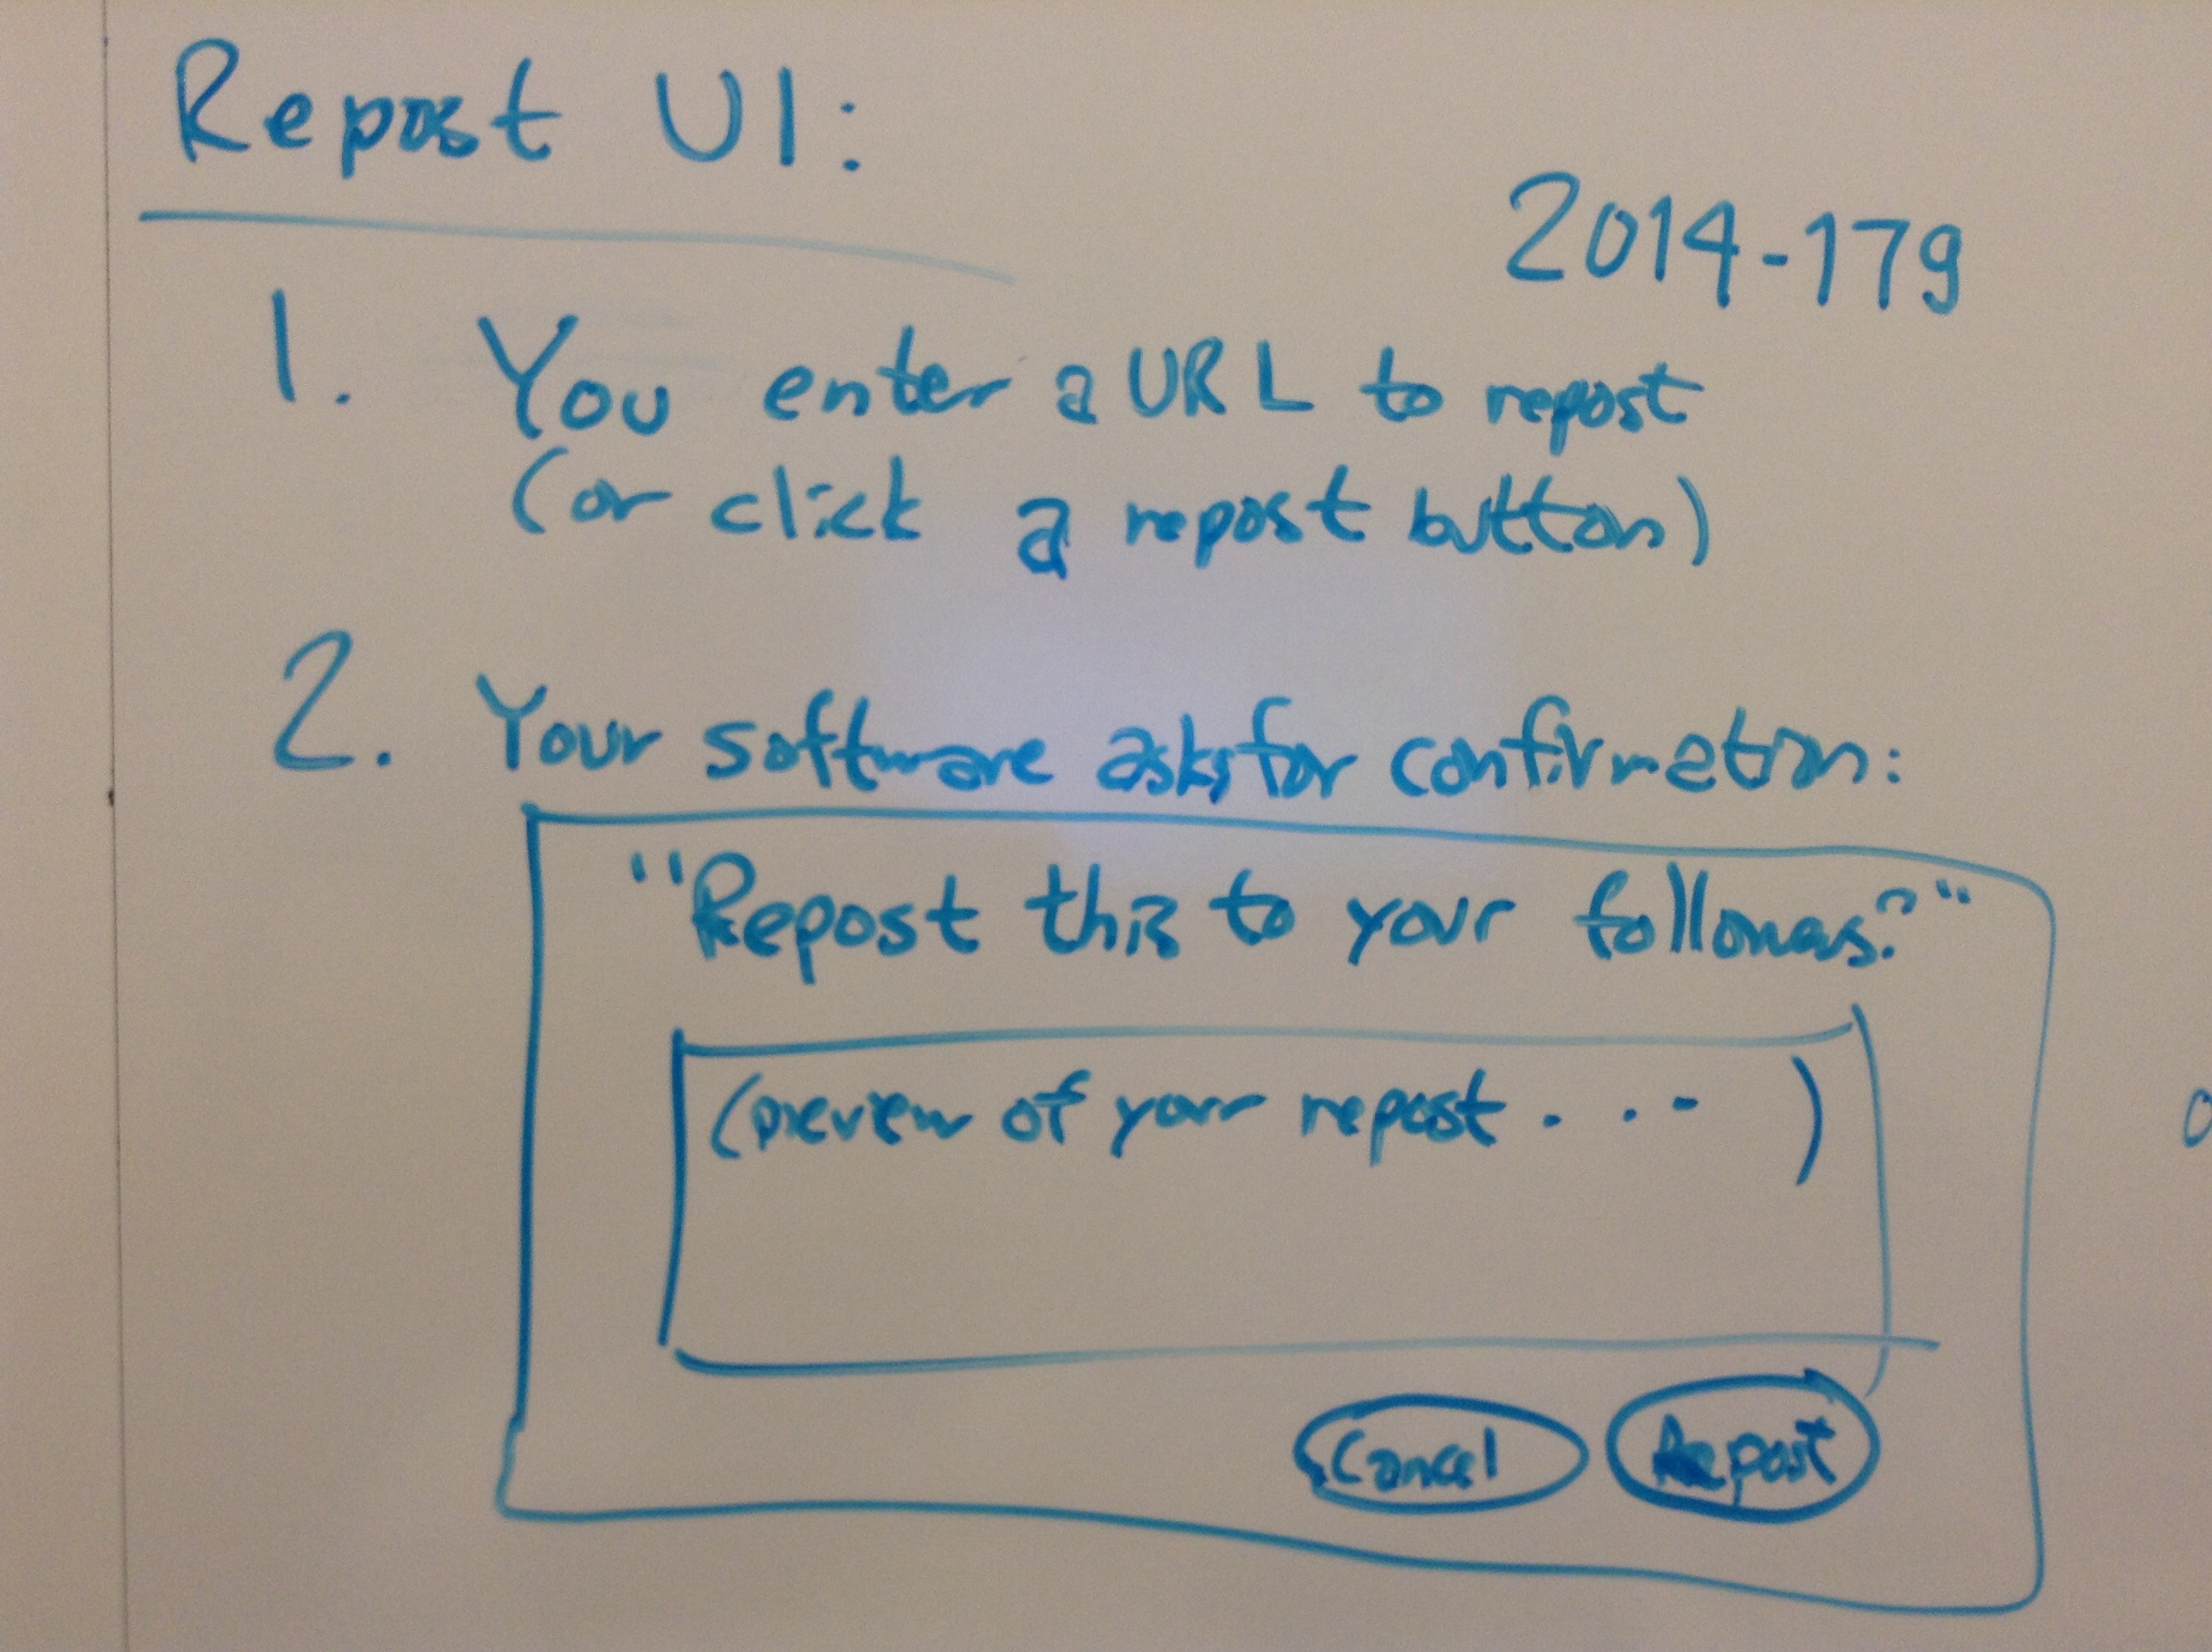 Repost UI:
2014-179
1. You enter a URL to repost
(or click a repost button)
2. Your software asks for confirmation:
"Repost this to your followers?"
(preview of your repost ... )
Cancel Repost